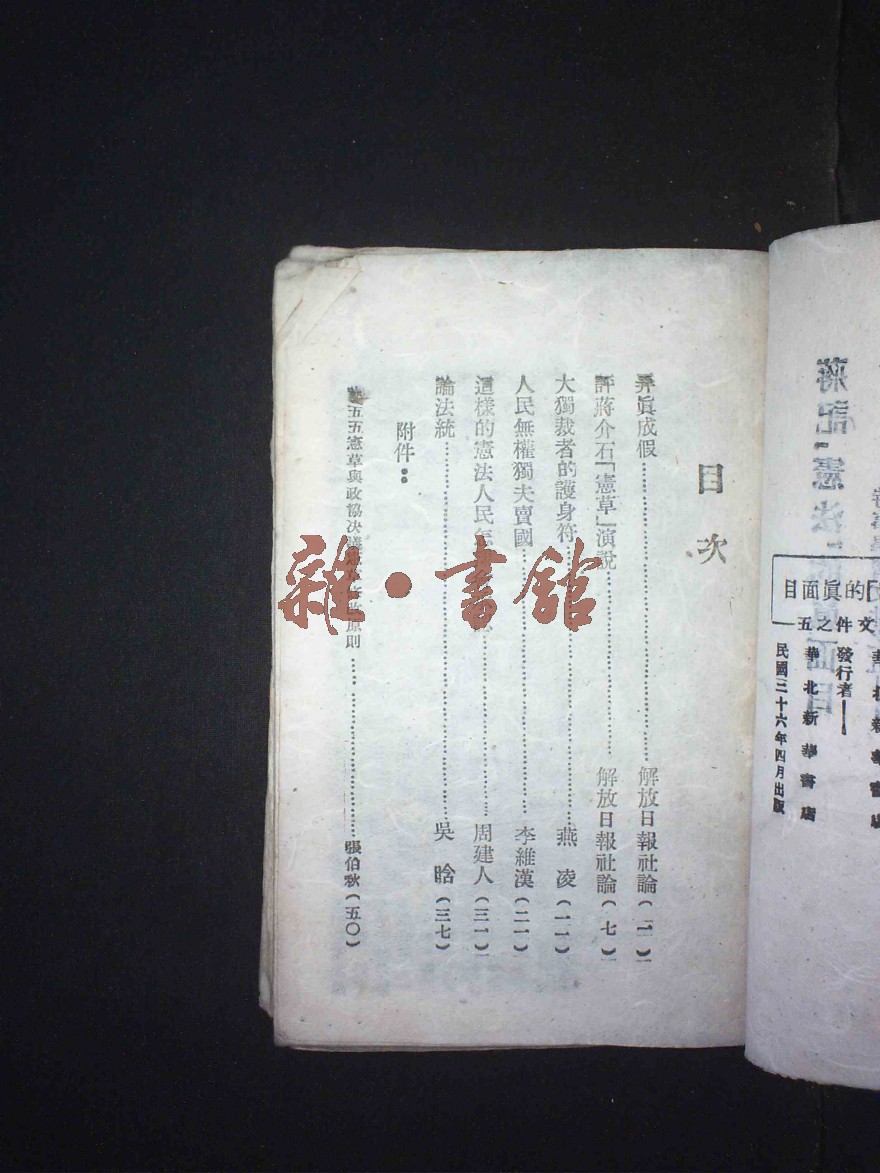 目次
弄眞成假…………解放日報社論（一）
評蔣介石「憲草」演說…………解放日報社論（七）
大獨裁者的護身符…………燕凌（一一）
人民無權獨夫賣國…………李維漢（二一）
這樣的憲法人民怎…………周建人（三一）
論法統…………吳晗（三七）
附件：
五五憲草與政協決議…原則…………張伯秋（五〇）
雜·書館
的眞面目
文件之五
發行者
華北新華書店
民國三十六年四月出版